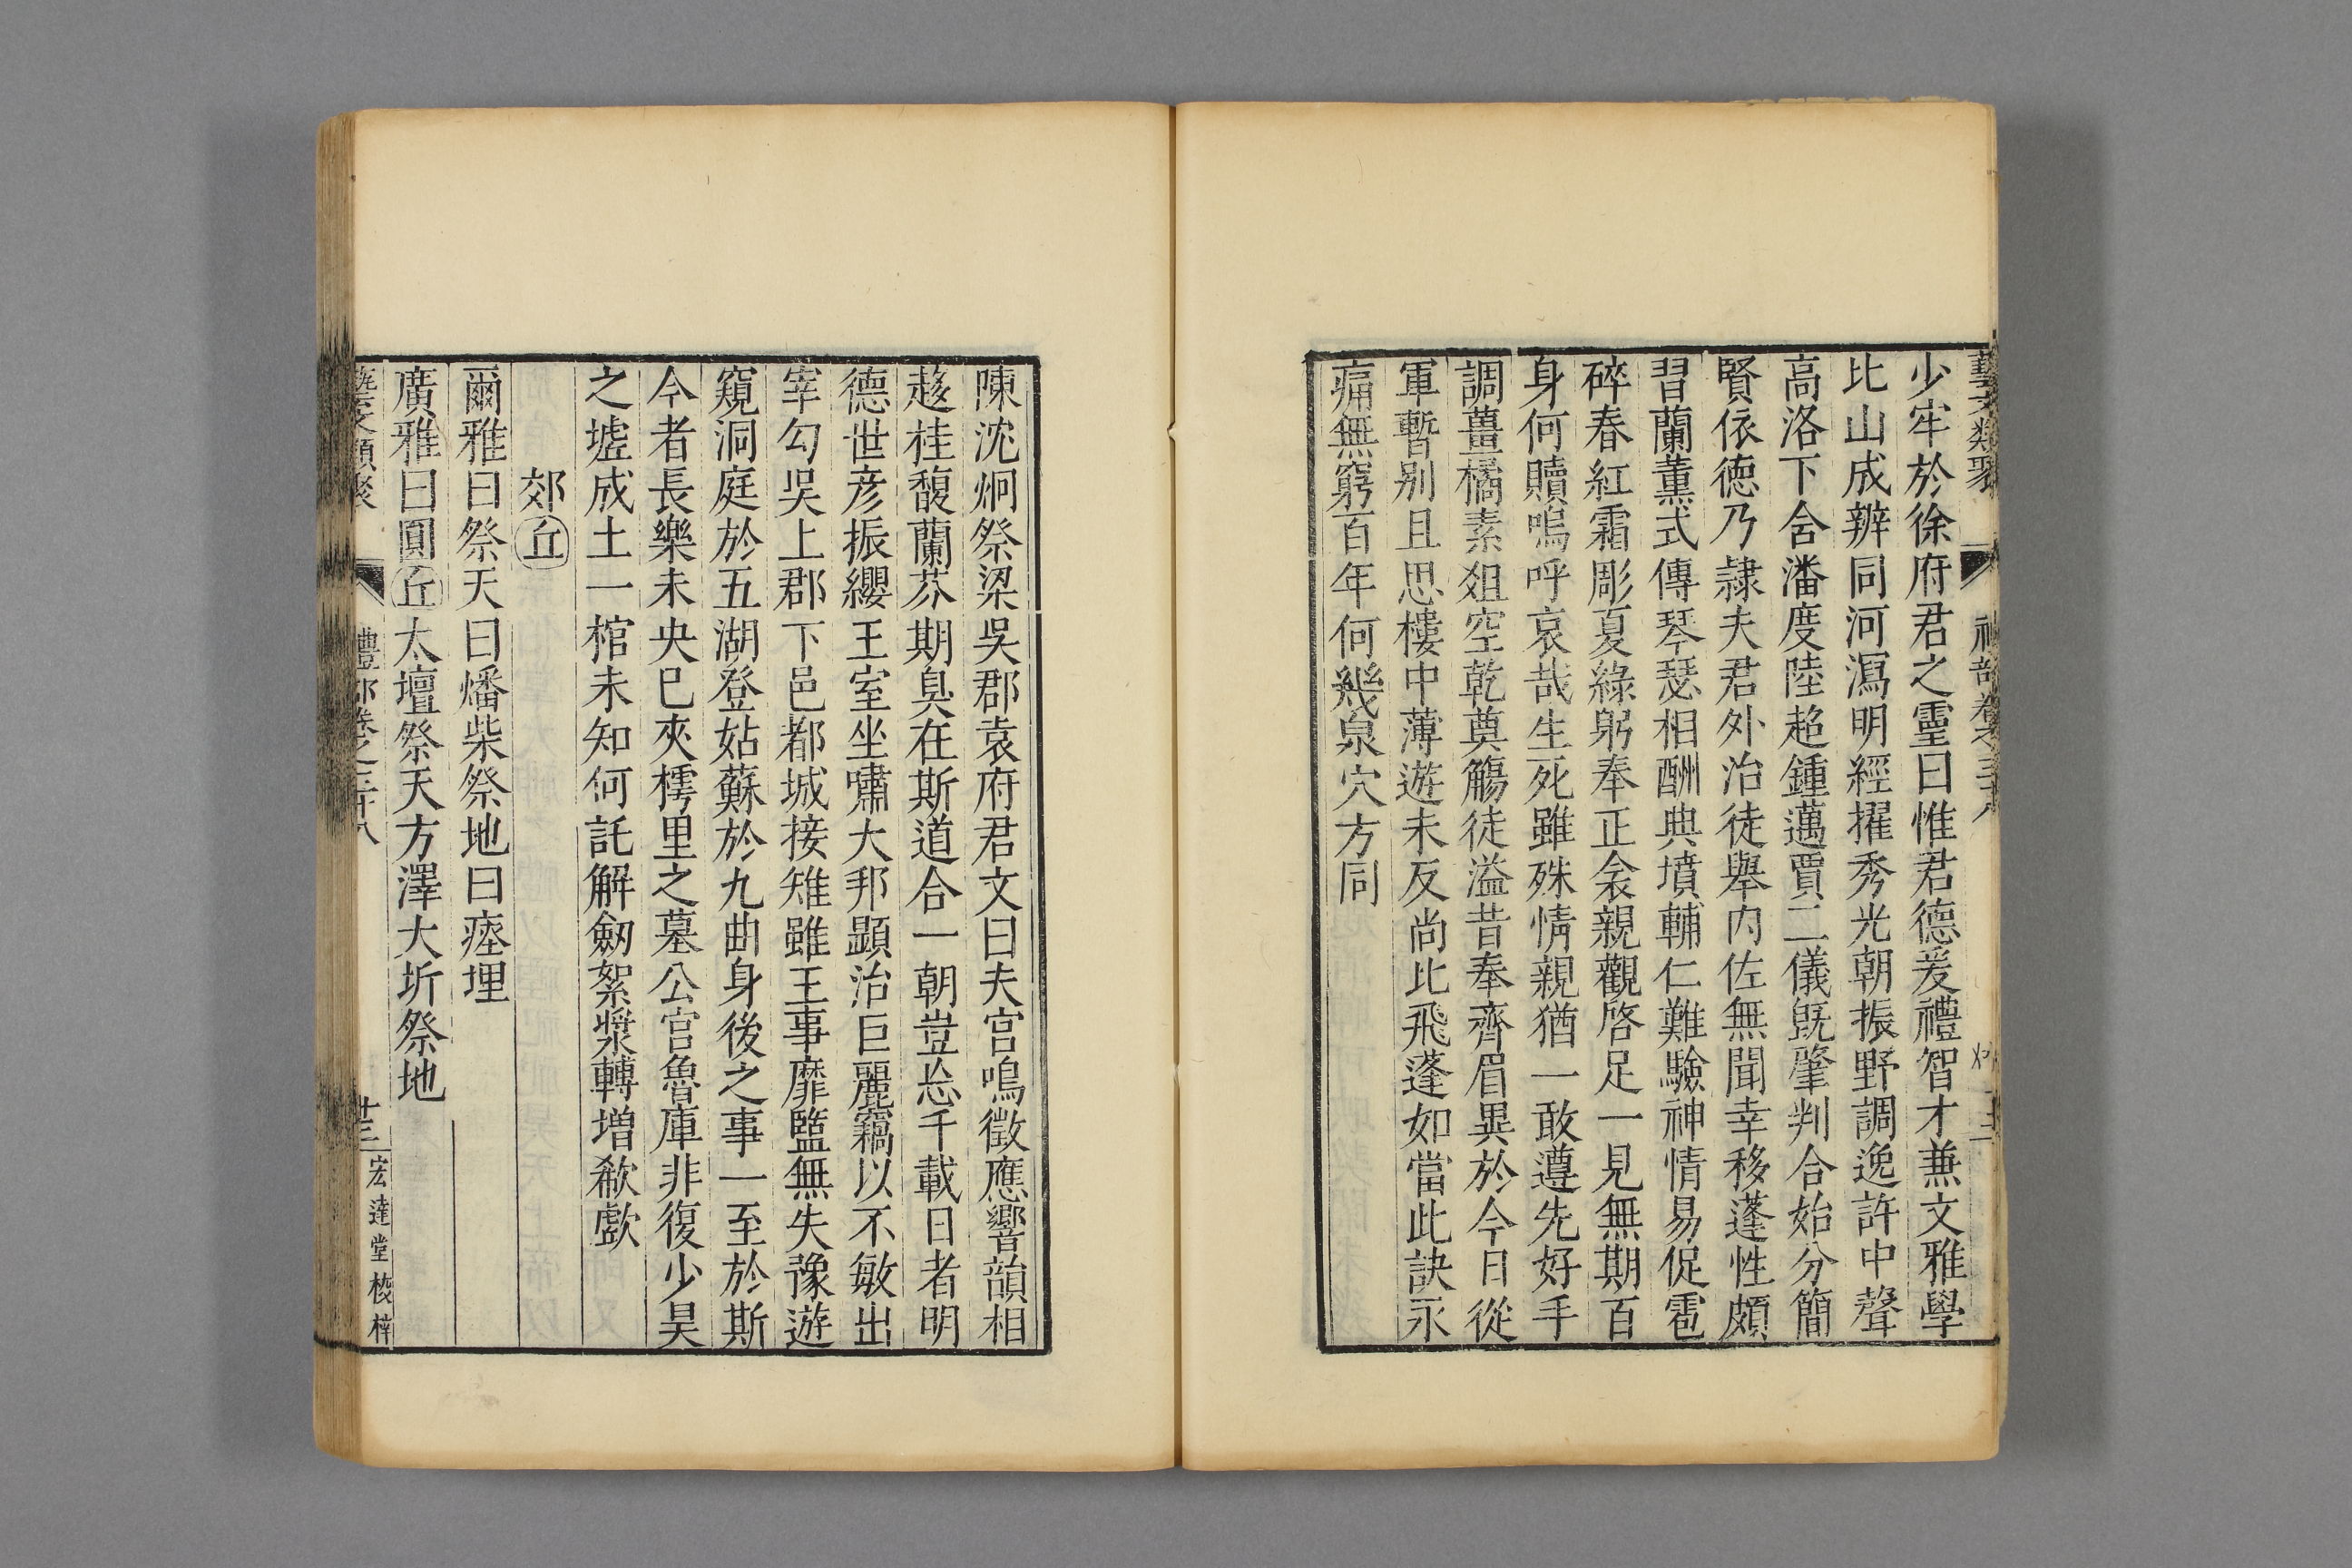 少牢於徐府君之靈曰惟君德爰禮智才兼文雅學
比山成辨同河瀉明經擢秀光朝振野調逸許中聲
高洛下含潘度陸超鍾邁賈二儀旣肇判合始分簡
賢依德乃隷夫君外治徒舉内佐無聞幸移蓬性頗
習蘭薰式傳琴瑟相酬典墳輔仁難驗神情易促雹
碎春紅霜彫夏綠躬奉正衾親觀啓足一見無期百
身何贖嗚呼哀哉生死雖殊情親猶一敢遵先好手
調薑橘素俎空乾奠觴徒溢昔奉齊眉異於今日從
軍暫别且思樓中薄遊未反尚比飛蓬如當此訣永
痛無窮百年何幾泉穴方同
陳沈炯祭梁吳郡袁府君文曰夫宫鳴徵應響韻相
趍桂馥蘭芬期臭在斯道合一朝豈忘千載日者明
德世彦振纓王室坐嘯大邦顯治巨麗竊以不敏出
宰勾吳上郡下邑都城接雉雖王事靡盬無失豫遊
窺洞庭於五湖登姑蘇於九曲身後之事一至於斯
今者長樂未央已夾樗里之墓公宫魯庫非復少昊
之墟成土一棺未知何託解劒絮漿轉增欷歔
郊丘
爾雅曰祭天曰燔柴祭地曰瘞埋
廣雅曰圓丘太壇祭天方澤大圻祭地
藝文類聚
禮部卷之三十八
廿三
宏達堂校梓